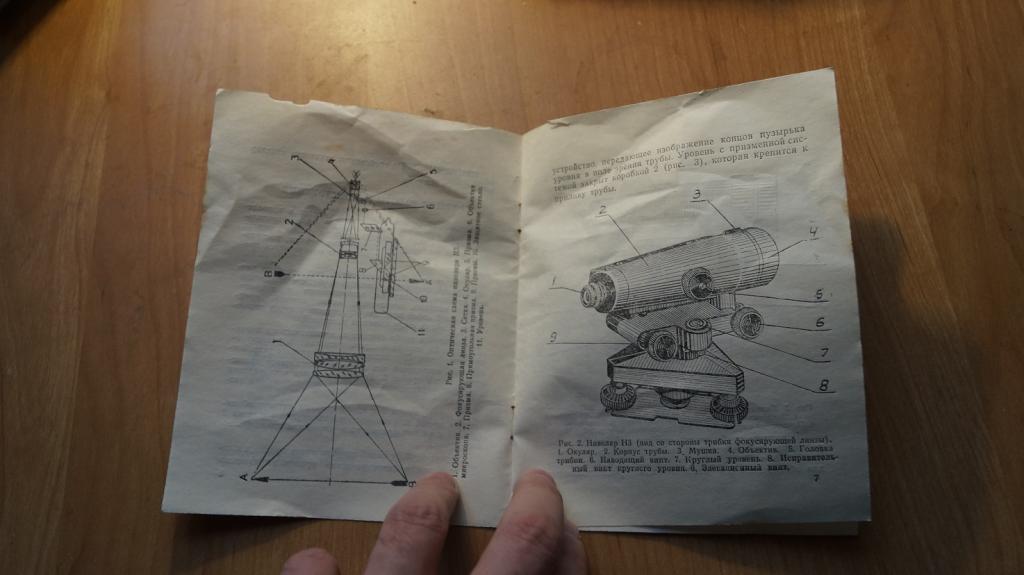 Рис. 1. Оптическая схема нивелира Н3:
1. Объектив. 2. Фокусирующая линза. 3. Сетка. 4. Окуляр. 5. Призма. 6. Объектив
микроскопа. 7. Призма. 8. Прямоугольная призма. 9. Призма. 10.
11. Уровень.
A
B
B
1
2
3
4
5
6
11
устройство, передающее изображение концов пузырька
уровня в поле зрения трубы. Уровень с призменной сис-
темой закрыт коробкой 2 (рис. 3), которая крепится к
приливу трубы.
1
2
3
4
5
6
7
8
9
Рис. 2. Нивелир Н3 (вид со стороны трибки фокусирующей линзы).
1. Окуляр. 2. Корпус трубы. 3. Мушка. 4. Объектив. 5. Головка
трибки. 6. Наводящий винт. 7. Круглый уровень. 8. Исправитель-
ный винт круглого уровня. 9. Элевационный винт.
7